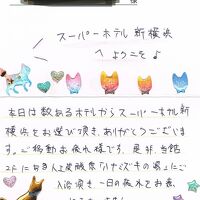 様
スーパーホテル新横浜
へようこそ♪
本日は数あるホテルからスーパーホテル新
横浜をお選び頂き、ありがとうございま
す。ご移動お疲れ様です。是非、当館
2Fにある人工炭酸泉「ハナミズキの湯」にご
入浴頂き、一日の疲れをお癒